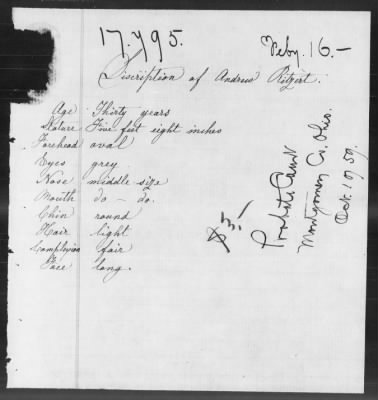 17.795.
Feby. 16.-
Discription of Andrew Ritzert.
Age Thirty years
Stature Five feet eight inches
Forehead oval
Eyes grey
Nose middle size
Mouth do - do.
Chin round
Hair light
Complexion fair
Face long.
$5-
Probate Court
Montgomery Co. Ohio.
Oct. 10 59.